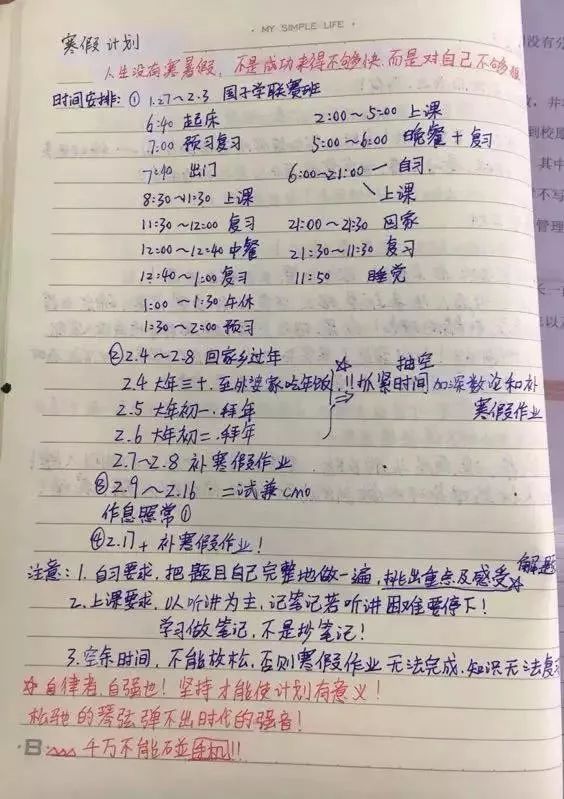 MY SIMPLE LIFE
寒假计划
人生没有寒暑假,不是成功来得不够快,而是对自己不够狠
时间安排: ① 1.27~2.3 国子学联赛班
6:40 起床 2:00~5:00 上课
7:00 预习复习 5:00~6:00 晚餐+复习
7:40 出门 6:00~21:00 一自习
8:30~11:30 上课 \上课
11:30~12:00 复习 21:00~21:30 回家
12:00~12:40 中餐 21:30~11:30 复习
12:40~1:00 复习 11:50 睡觉
1:00~1:30 午休
1:30~2:00 预习
② 2.4~2.8 回家乡过年 ☆ 抽空
2.4 大年三十. 至外婆家吃年饭. !! 抓紧时间 加深数论和补
2.5 大年初一. 拜年 ⇒ 寒假作业
2.6 大年初二. 拜年
2.7~2.8 补寒假作业
③ 2.9~2.16. 二试兼cmo
作息照常①
④ 2.17+ 补寒假作业!
注意: 1. 自习要求, 把题目自己完整地做一遍, 挑出重点及感受☆ 解题
2. 上课要求. 以听讲为主, 记笔记若听讲困难要停下!
学习做笔记, 不是抄笔记!
3. 空余时间, 不能放松, 否则寒假作业无法完成, 知识无法复
☆ 自律者, 自强也! 坚持才能使计划有意义!
松弛的琴弦弹不出时代的强音!
千万不能碰手机!!